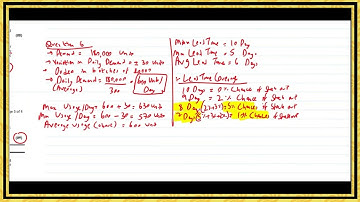 Question 6
→ Demand = 180,000 Units
→ Variation in Daily Demand = ± 30 Units
→ Order in batches of
→ Daily Demand = 180,000 = 600 Units/
(Average) 300 Day
Max Usage/Day = 600 + 30 = 630 Units
Min Usage/Day = 600 - 30 = 570 Units
Average usage = 600 units
Max Lead Time = 10 Day
Min Lead Time = 5 Day
Avg Lead Time = 6 Day
Lead Time
10 Day = 0% Chance of Stock out
9 Day = 2% Chance of Stock out
8 Day = 5% Chance of Stock out
7 Day = 10% Chance of Stock out